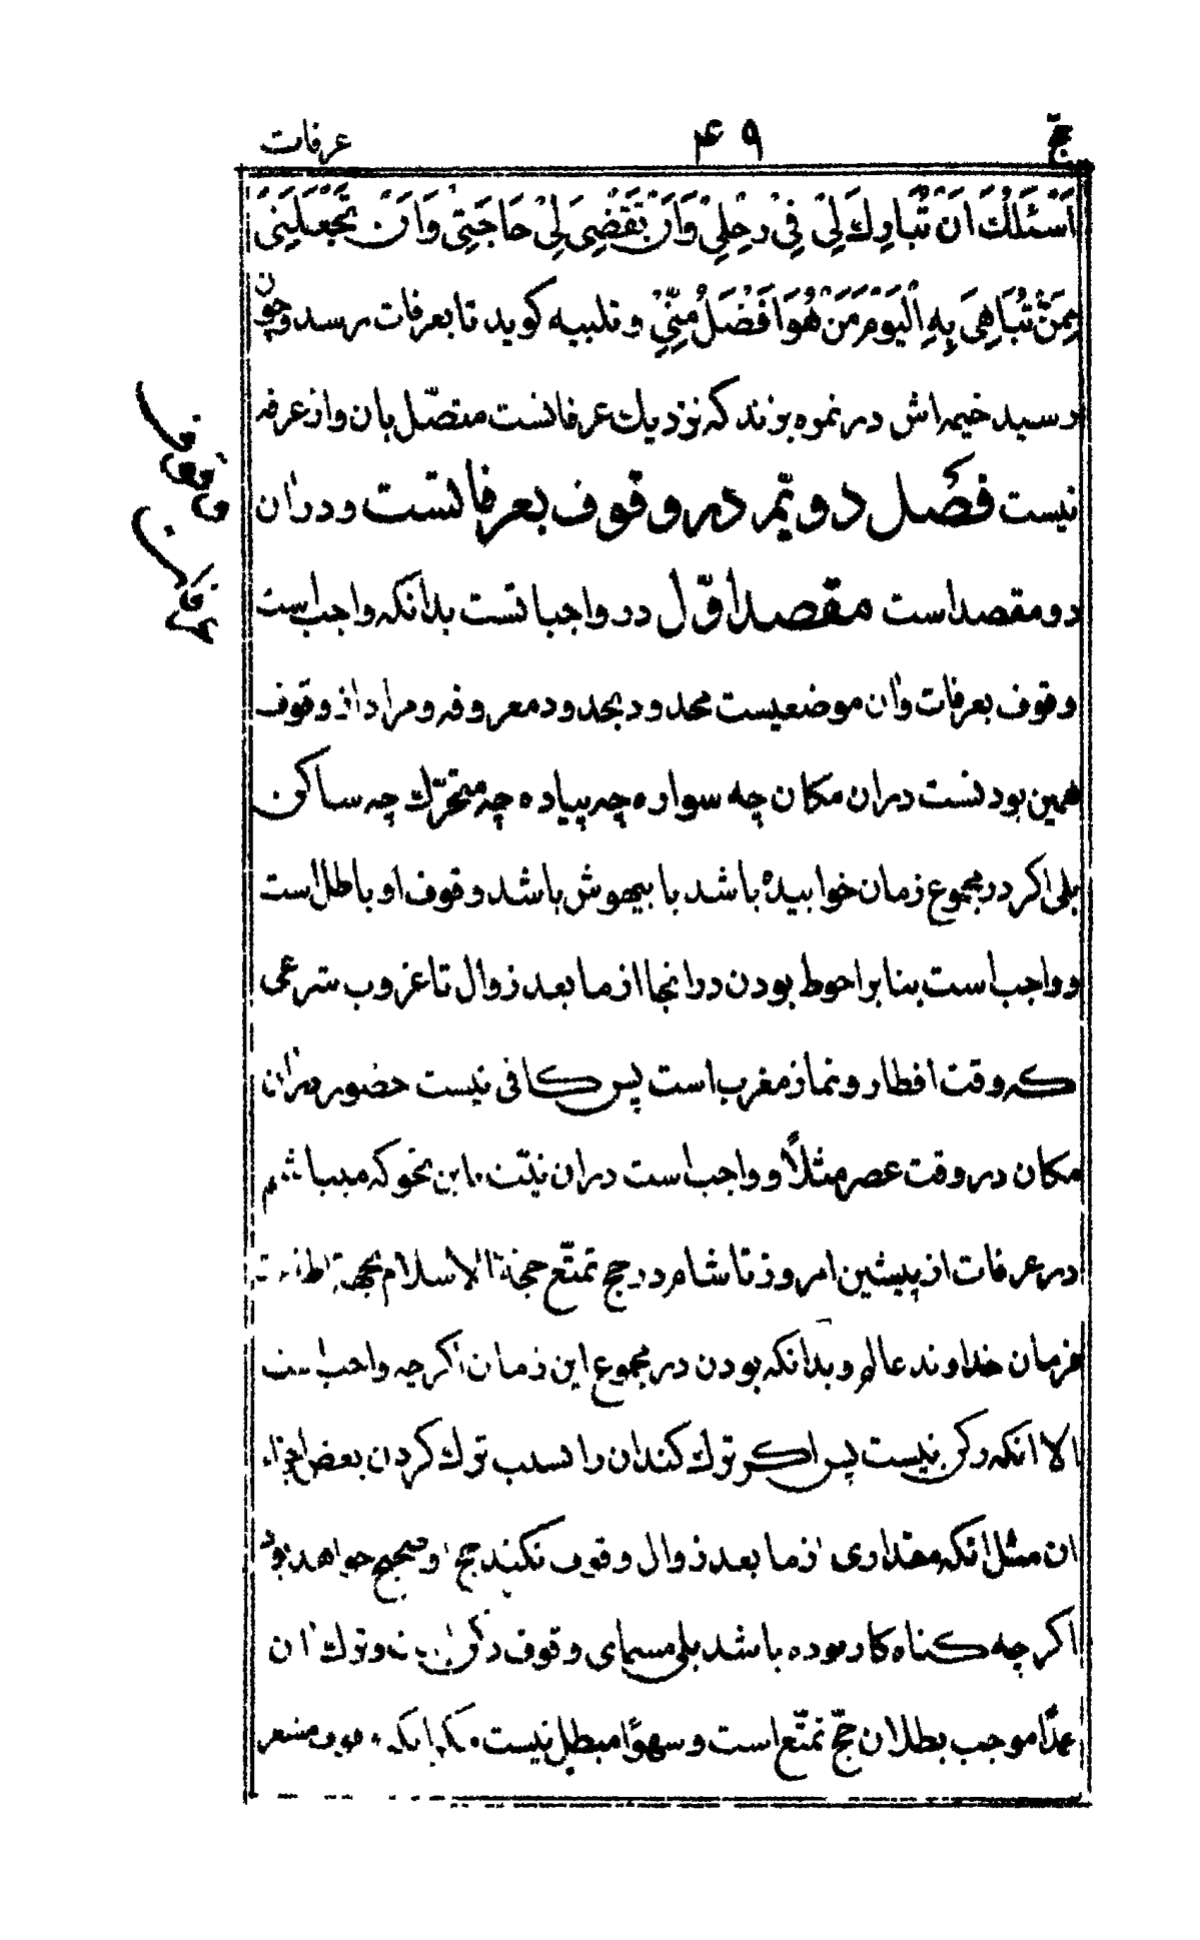 حجّ ۴۹ عرفات
اَسْئَلُكَ اَنْ تُبارِكَ لِیْ فِیْ رِحْلِیْ وَاَنْ تَقْضِیَ لِیْ حَاجَتِیْ وَاَنْ تَجْعَلَنِیْ
مِمَنْ تُبَاهِیَ بِهِ الْیَوْمَ مَنْ هُوَ اَفْضَلُ مِنِّیْ و تلبیه کوید تا بعرفات برسد و چون
رسید خیمه اش در نمره بزند که نزدیك عرفاتست متصّل بان و از عرفه
نیست فصل دویّم در وقوف بعرفاتست و دران
دو مقصد است مقصد اوّل در واجباتست بدانکه واجب است
وقوف بعرفات وان موضعیست محدود بحدود معروفه و مراد از وقوف
همین بودنست دران مکان چه سواره چه پیاده چه متحرّك چه ساکن
بلی اکر در مجموع زمان خوابیده باشد یا بیهوش باشد وقوف او باطل است
و واجب است بنا بر احوط بودن در انجا از ما بعد زوال تا غروب شرعی
که وقت افطار و نماز مغرب است پس کافی نیست حضور دران
مکان در وقت عصر مثلاً و واجب است دران نیّت باین نحو که میباشم
در عرفات از پیشین امروز تا شام در حج تمتّع حجة الاسلام بجهة اطاعت
فرمان خداوند عالم و بدانکه بودن در مجموع این زمان اکرچه واجب است
الا انکه رکن نیست پس اکر ترك کند ان را بسبب ترك کردن بعض اجزاء
ان مثل انکه مقداری از ما بعد زوال وقوف نکند حج او صحیح خواهد بود
اکر چه کناه کار بوده باشد بلی مسمای وقوف رکن است و ترك ان
عمدًا موجب بطلان حجّ تمتّع است و سهوًا مبطل نیست مکر انکه وقوف مشعر
وقوف
عرفات